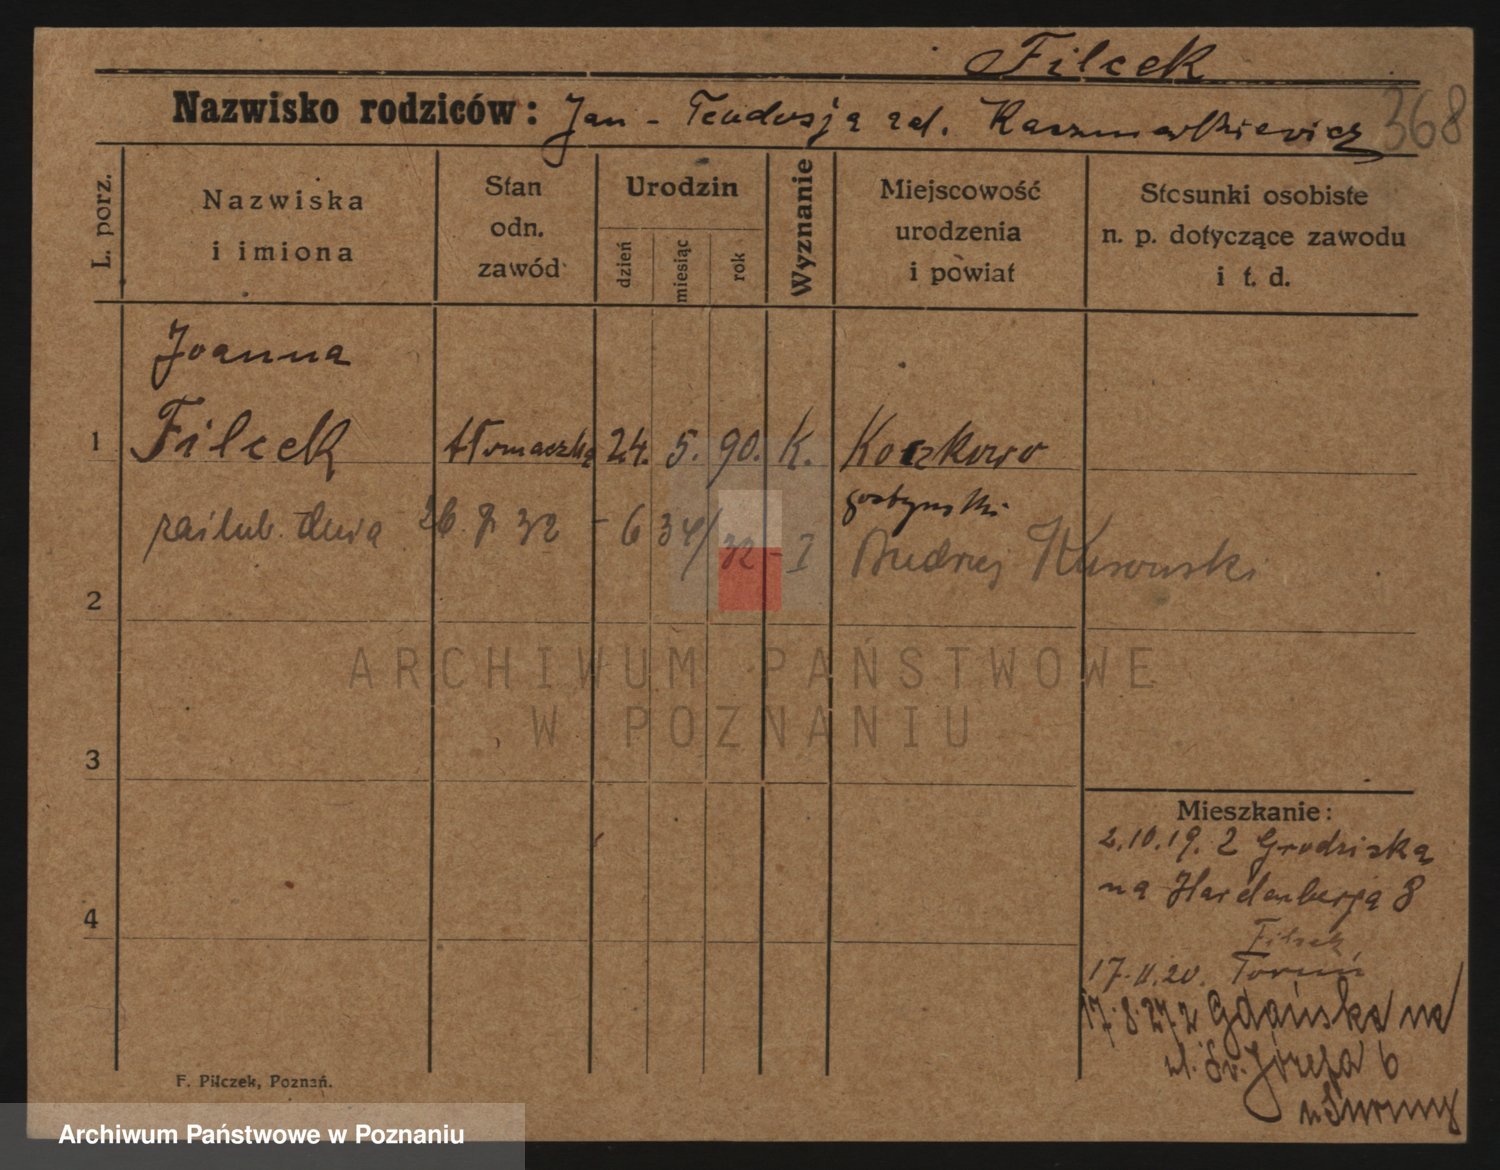 Filcek
368
Nazwisko rodziców: Jan - Teodosja zd. Kaczmarkiewicz
L. porz.
Nazwiska
i imiona
Stan
odn.
zawód
Urodzin
dzień
miesiąc
rok
Wyznanie
Miejscowość
urodzenia
i powiat
Stosunki osobiste
n. p. dotyczące zawodu
i t. d.
Joanna
1 Filcek tłomaczka 24. 5. 90. K. Koszkowo
gostyński
zaślub. dnia 26. 7 32 - 634/32 - I Andrzej
2
ARCHIWUM PAŃSTWOWE
W POZNANIU
3
Mieszkanie:
2.10.19. z Grodziska
na Hardenberga 8
4
Filcek
17.11.20. Toruń
17.8.27. z Gdańska na
ul. Św. Józefa 6
F. Pilczek, Poznań.
Archiwum Państwowe w Poznaniu